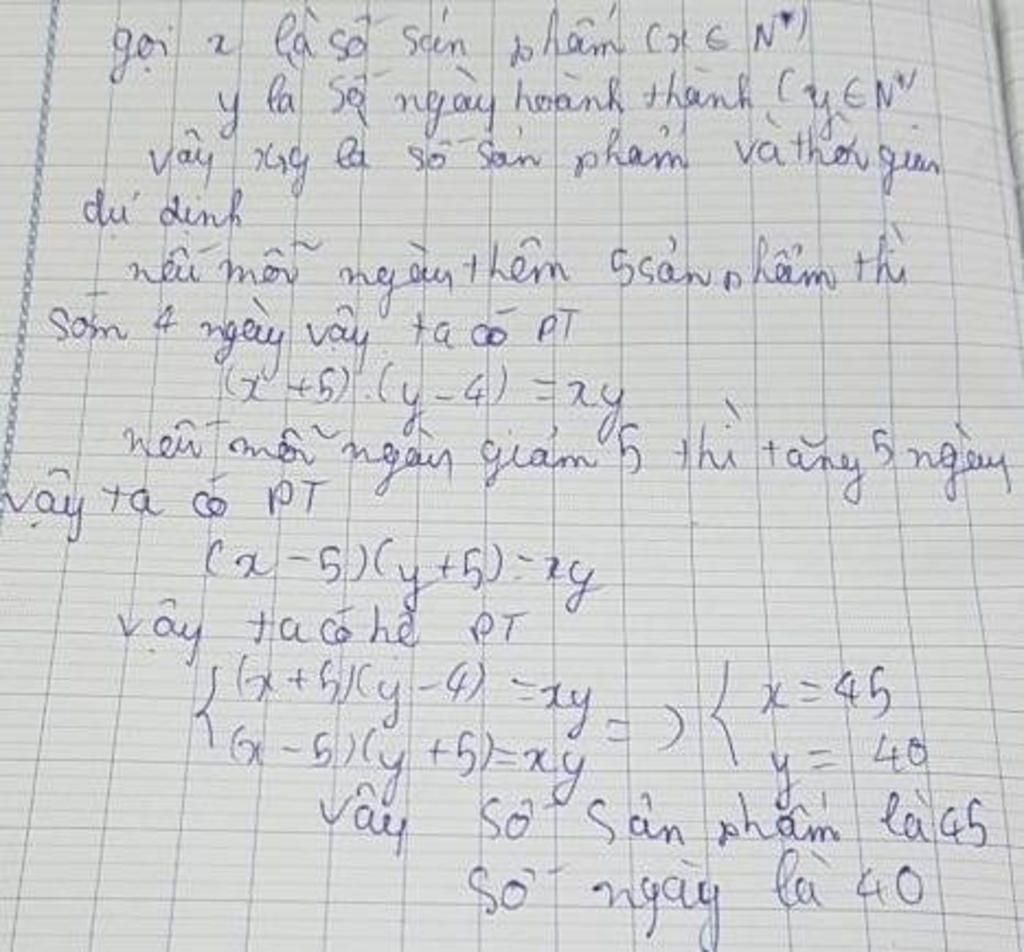 gọi x là số sản phẩm (x ∈ N*)
y là số ngày hoành thành (y ∈ N*
vậy x,y là số sản phảm và thời gian
dự định
nếu mỗi ngày thêm 5 sản phẩm thì
sớm 4 ngày vậy ta có PT
(x+5).(y-4) = xy
nếu mỗi ngày giảm 5 thì tăng 5 ngày
vậy ta có PT
(x-5)(y+5)=xy
vậy ta có hệ PT
{(x+5)(y-4) = xy
(x-5)(y+5)=xy => { x = 45
y = 40
vậy số sản phẩm là 45
số ngày là 40